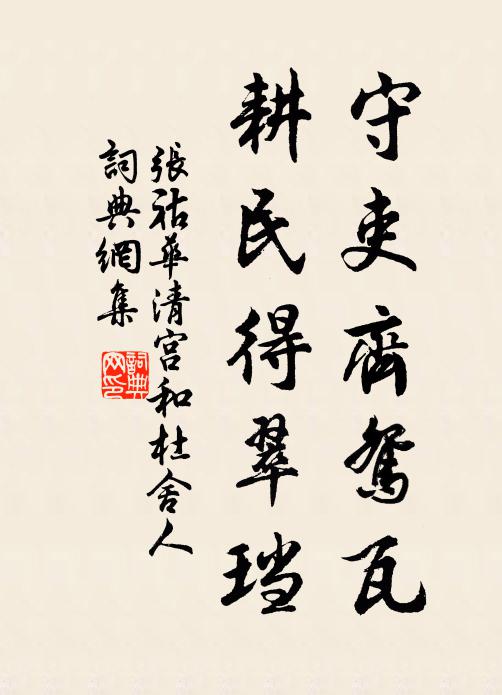 守吏齊鴛瓦
耕民得翠珰
張祜華清宮和杜舍人
詞典網集
詞典網印